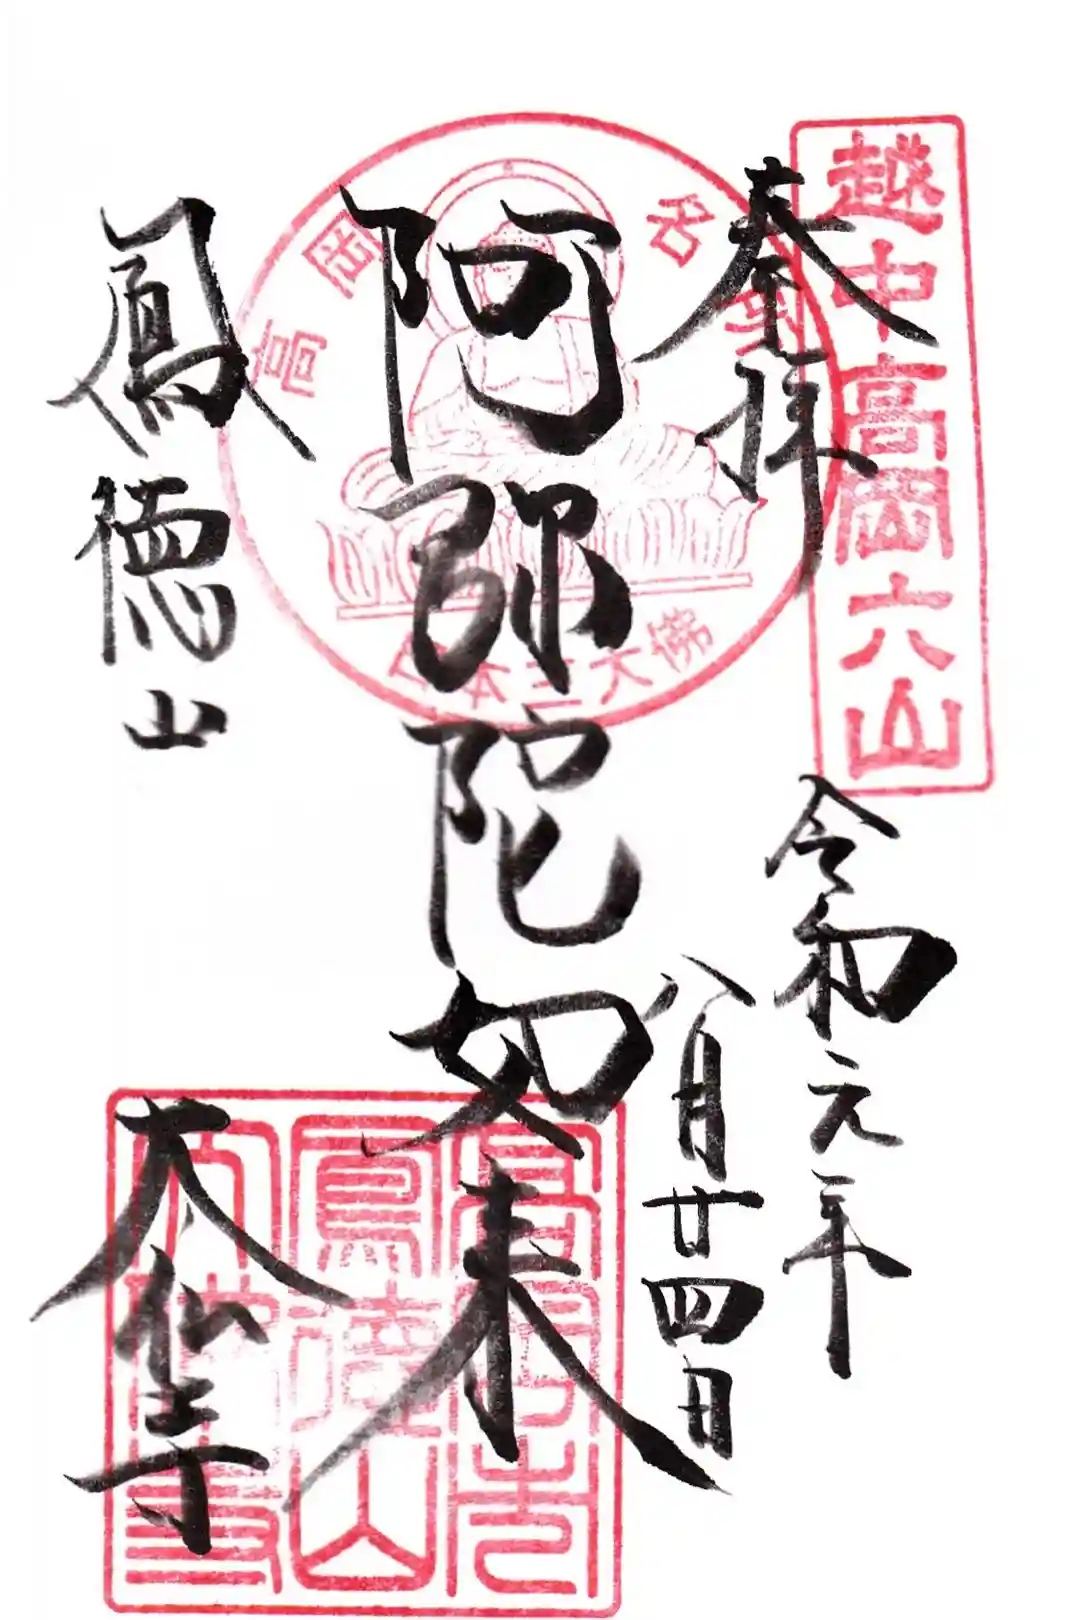 越中高岡六山
奉拝
令和元年
八月廿四日
高岡名
日本三大佛
阿弥陀如来
鳳徳山
大仏寺
高岡市
鳳德山
大佛寺